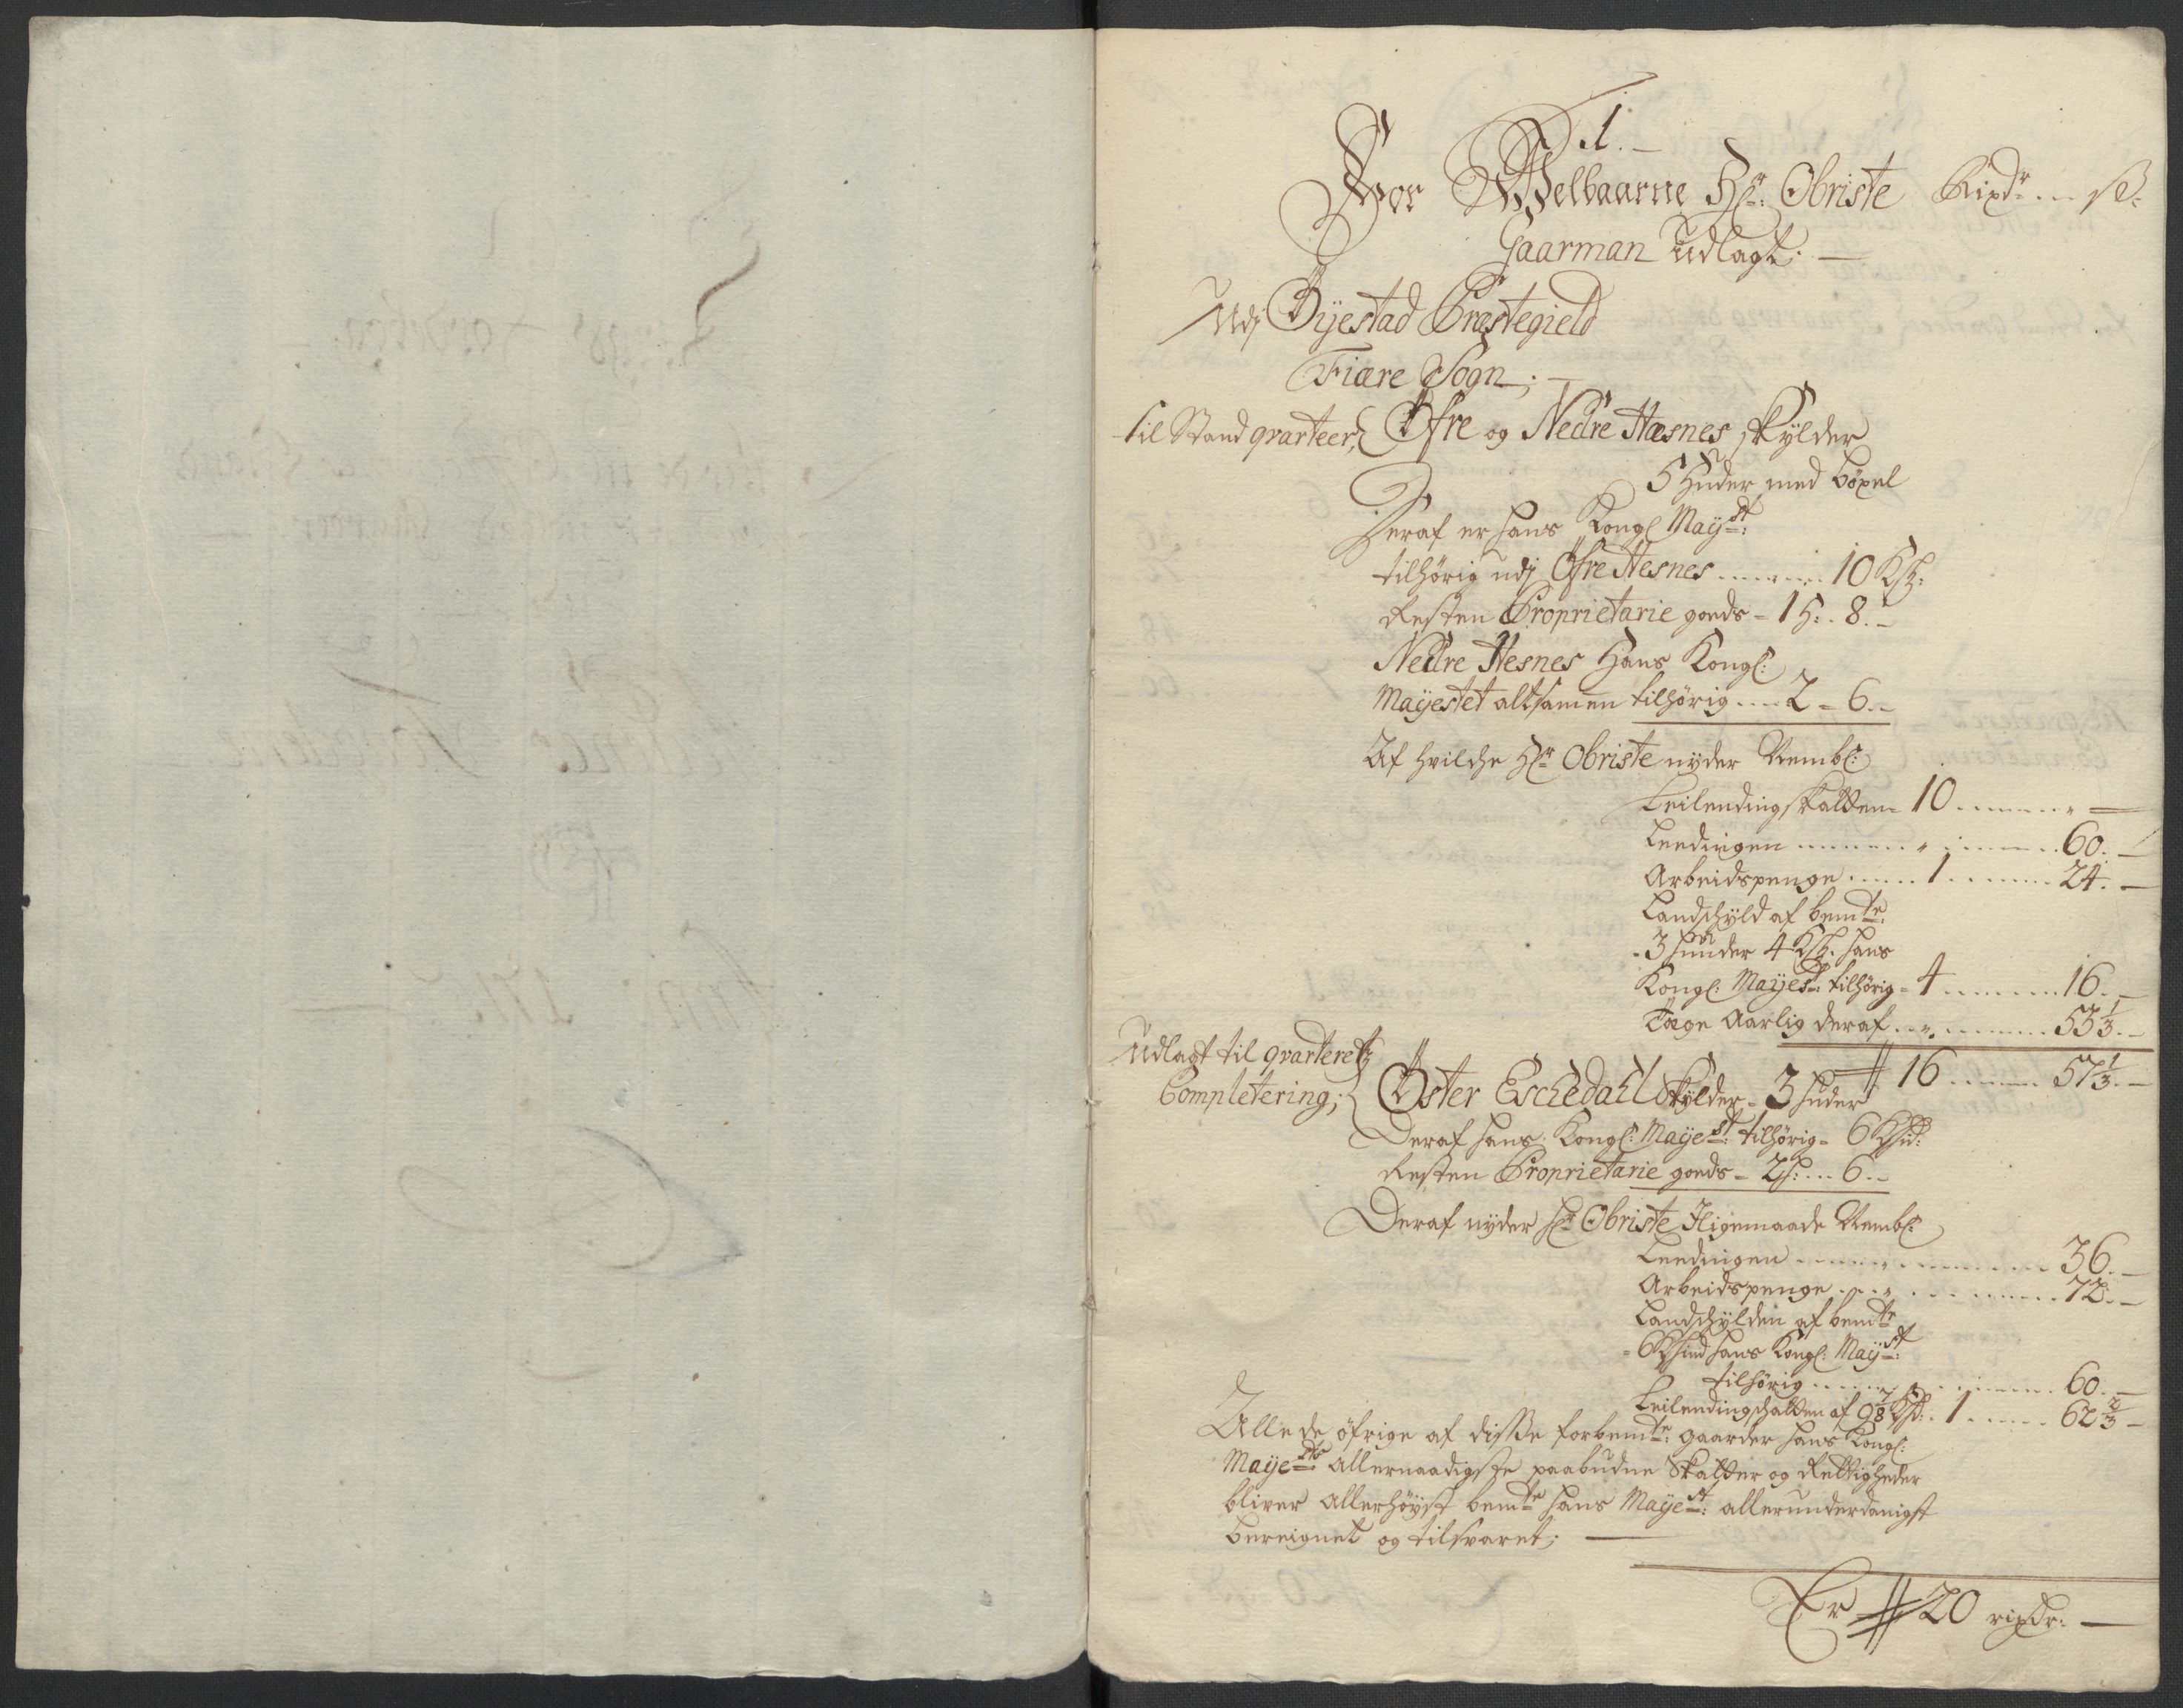 1.
For Welbaarne Hr: Obriste Rixdr ... ß:
Gaarman Udlagt:
Udj Öyestad Præstegield
Fiære Sogn;
til Stand qvarteer; Öfre og Nedre Hæsnes skylder
5 Huder med böxel
Deraf er hans Kongl Mayst:
tilhörig udj Öfre Hesnes ...... 10 Ksk:
Resten Proprietarie goeds - 1 H: . 8 . -
Nedre Hesnes Hans Kongl:
Mayestet altsamen tilhörig .... 2 - 6 . -
Af hvilche Hr Obriste nyder Nembl:
Leilendingskatten - 10 ........ „ —
Leedingen ....... „ ....... 60. —
Arbeidspenge ..... 1 ....... 24. —
Landschyld af bemte:
- 3 huuder 4 Ksk: hans
Kongl: Mayest: tilhörig - 4 ....... 16. —
Tæge Aarlig deraf .. „ ....... 53 1/3 . —
16 ...... 57 1/3 . —
Udlagt til qvarterets
Completering; Öster Eschedahl Skylder - 3 huder
Deraf hans Kongl: Mayest: tilhörig - 6 Khud:
Resten Proprietarie goeds - 2 h: ... 6 . -
Deraf nyder Hr Obriste Iligemaade Nembl:
Leedingen ....... „ ....... 36. —
Arbeidspenge .... „ ....... 72. —
Landschylden af bemte
- 6 Khud hans Kongl: Mayst:
tilhörig ....... „ ....... 60. —
Leilendingschatten af 9 7/8 Ksk: . 1 ..... 62 2/3 —
Alle de öfrige af disse forbemte: gaarder hans Kongl:
Mayets: allernaadigste paabudne Skatter og Rettigheder
bliver allerhöyst bemte hans Mayest: allerunderdanigst
bereignet og tilsvaret; —
Er 20 rixdr: —